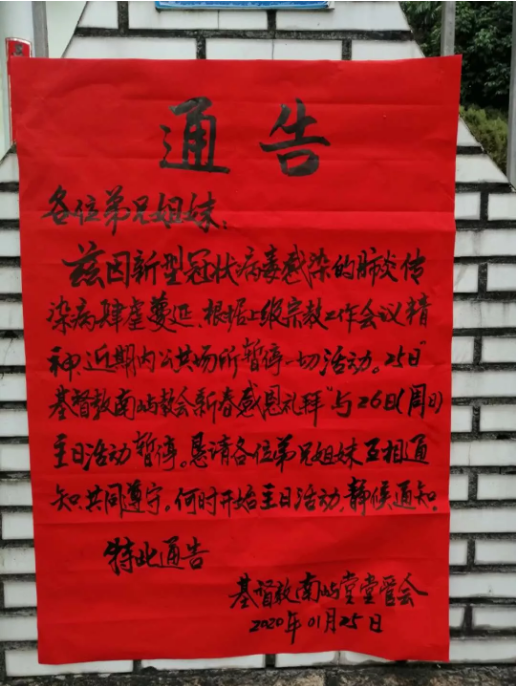 通告
各位弟兄姐妹：
兹因新型冠状病毒感染的肺炎传
染病肆虐蔓延、根据上级宗教工作会议精
神、近期内公共场所暂停一切活动。25日“
基督教南屿教会新春感恩礼拜”与26日(周日)
主日活动暂停。恳请各位弟兄姐妹互相通
知、共同遵守。何时开始主日活动，静候通知。
特此通告
基督教南屿堂堂管会
2020年01月25日